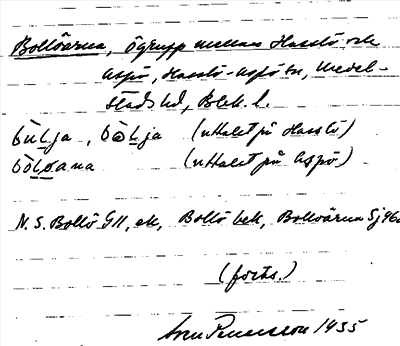 Bollöarna, ögrupp mellan Hasslö och
Aspö, Hasslö-Aspö sn, Medel-
stads hd, Blek. l.
bùlja, bòlja (uttalet på Hasslö)
bòlᴏana (uttalet på Aspö)
N. S. Bollö GK, ek, Bollö bek, Bollöarna Sj 96a
(forts.)
Sven Petersson 1935